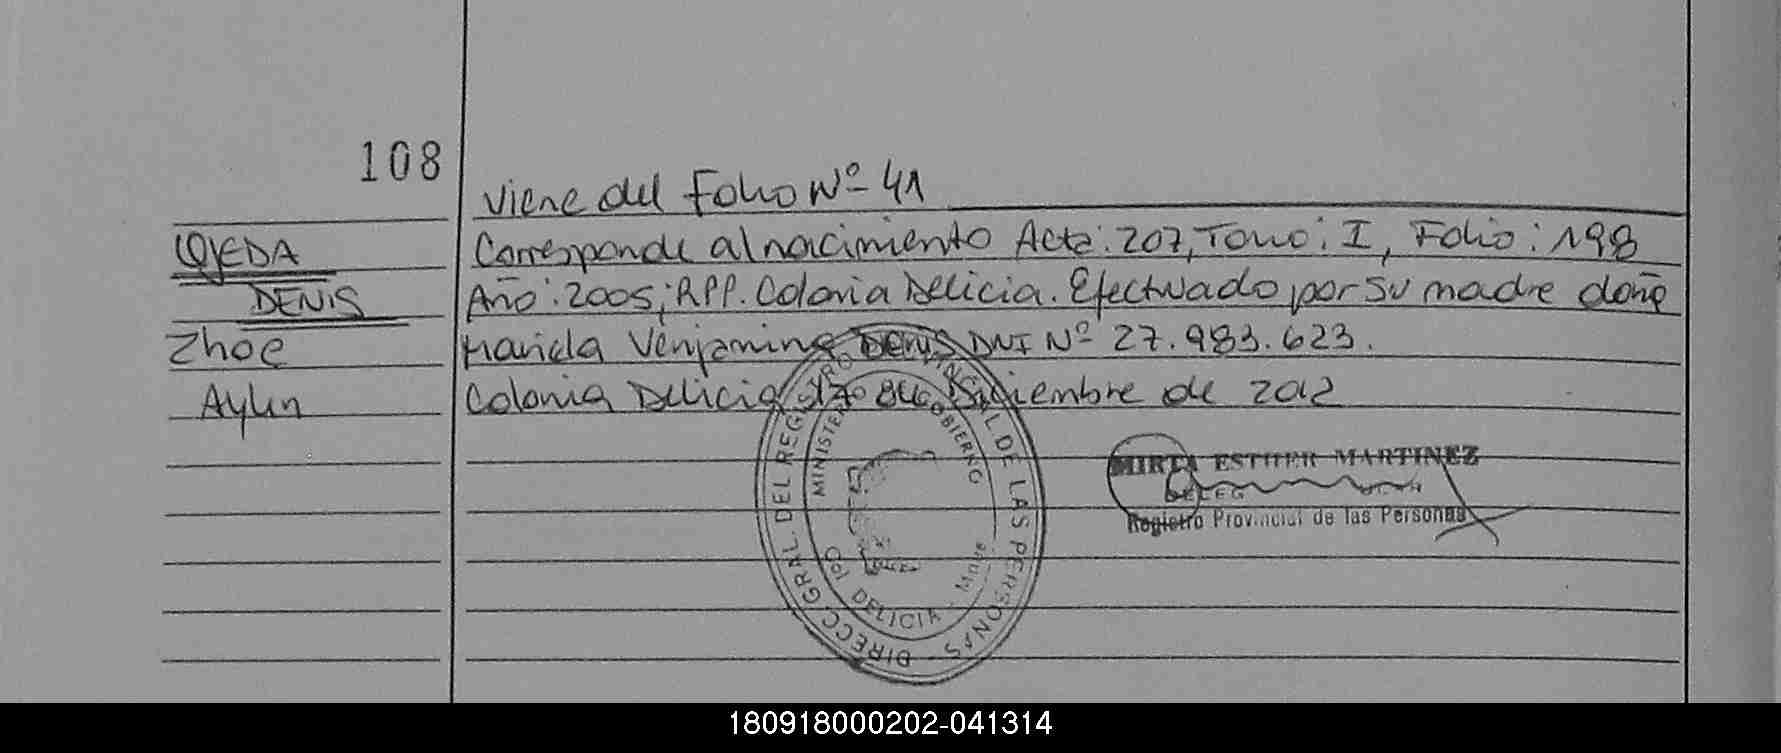 108
Viene del Folio Nº 41
OJEDA
Corresponde al nacimiento Acta: 207, Tomo: I, Folio: 198
DENIS
Año: 2005; RPP. Colonia Delicia. Efectuado por su madre doña
Zhoe
Mariela Venjamina DENIS DNI Nº 27.983.623.
Aylin
Colonia Delicia, de Diciembre de 2012
DIRECC. GRAL. DEL REGISTRO PROVINCIAL DE LAS PERSONAS
MINISTERIO GOBIERNO
DELICIA
MIRTA ESTHER MARTINEZ
Registro Provincial de las Personas
180918000202-041314